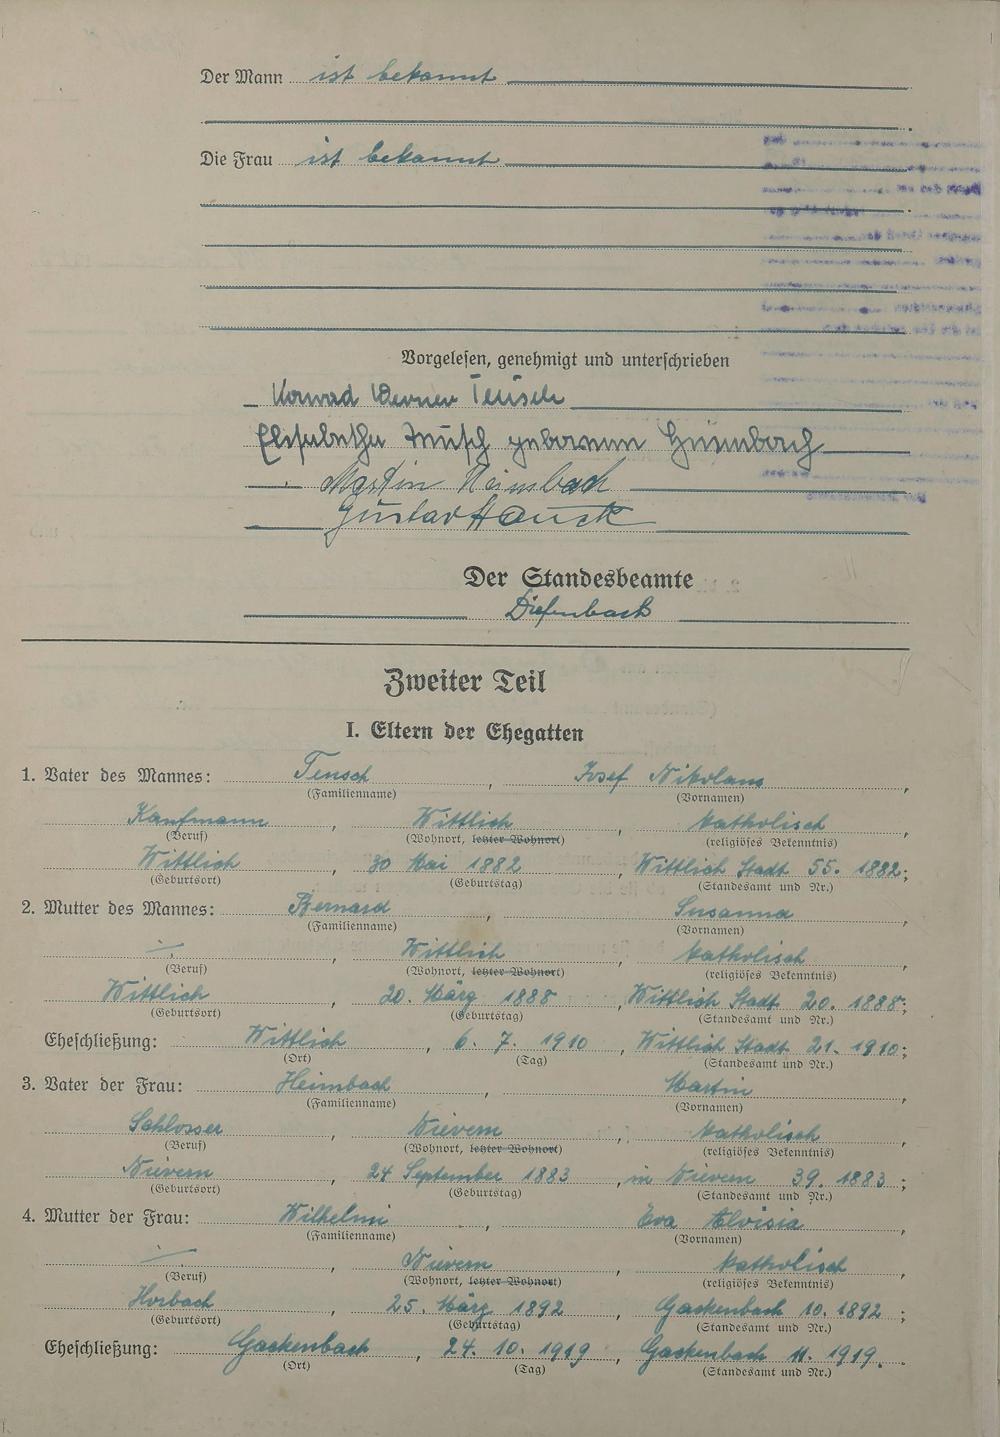 Der Mann ist bekannt
Die Frau ist bekannt
Vorgelesen, genehmigt und unterschrieben
Konrad Werner Teusch
Elisabetha Teusch geborenen Heimbach
Martin Heimbach
Gustav Hauck
Der Standesbeamte
Diefenbach
Zweiter Teil
I. Eltern der Ehegatten
1. Vater des Mannes: Teusch, Josef Nikolaus,
(Familienname) (Vornamen)
Kaufmann, Wittlich, katholisch
(Beruf) (Wohnort, letzter Wohnort) (religiöses Bekenntnis)
Wittlich, 30 Mai 1882, Wittlich Stadt 55. 1882;
(Geburtsort) (Geburtstag) (Standesamt und Nr.)
2. Mutter des Mannes: Bernard, Susanna,
(Familienname) (Vornamen)
Wittlich, katholisch
(Beruf) (Wohnort, letzter Wohnort) (religiöses Bekenntnis)
Wittlich, 20. März 1888, Wittlich Stadt 20. 1888;
(Geburtsort) (Geburtstag) (Standesamt und Nr.)
Eheschließung: Wittlich, 6. 7. 1910, Wittlich Stadt 21. 1910;
(Ort) (Tag) (Standesamt und Nr.)
3. Vater der Frau: Heimbach, Martin,
(Familienname) (Vornamen)
Schlosser, Nievern, katholisch
(Beruf) (Wohnort, letzter Wohnort) (religiöses Bekenntnis)
Nievern, 24 September 1883, in Nievern 39. 1883;
(Geburtsort) (Geburtstag) (Standesamt und Nr.)
4. Mutter der Frau: Wilhelmi, Eva Aloisia,
(Familienname) (Vornamen)
Nievern, katholisch
(Beruf) (Wohnort, letzter Wohnort) (religiöses Bekenntnis)
Horbach, 25. März 1892, Gackenbach 10. 1892;
(Geburtsort) (Geburtstag) (Standesamt und Nr.)
Eheschließung: Gackenbach, 24. 10. 1919, Gackenbach 11. 1919.
(Ort) (Tag) (Standesamt und Nr.)